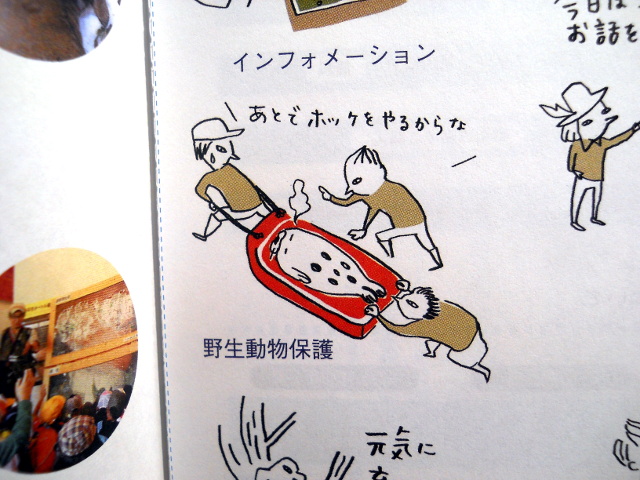 お話を
インフォメーション
あとでホッケをやるからな
野生動物保護
元気に